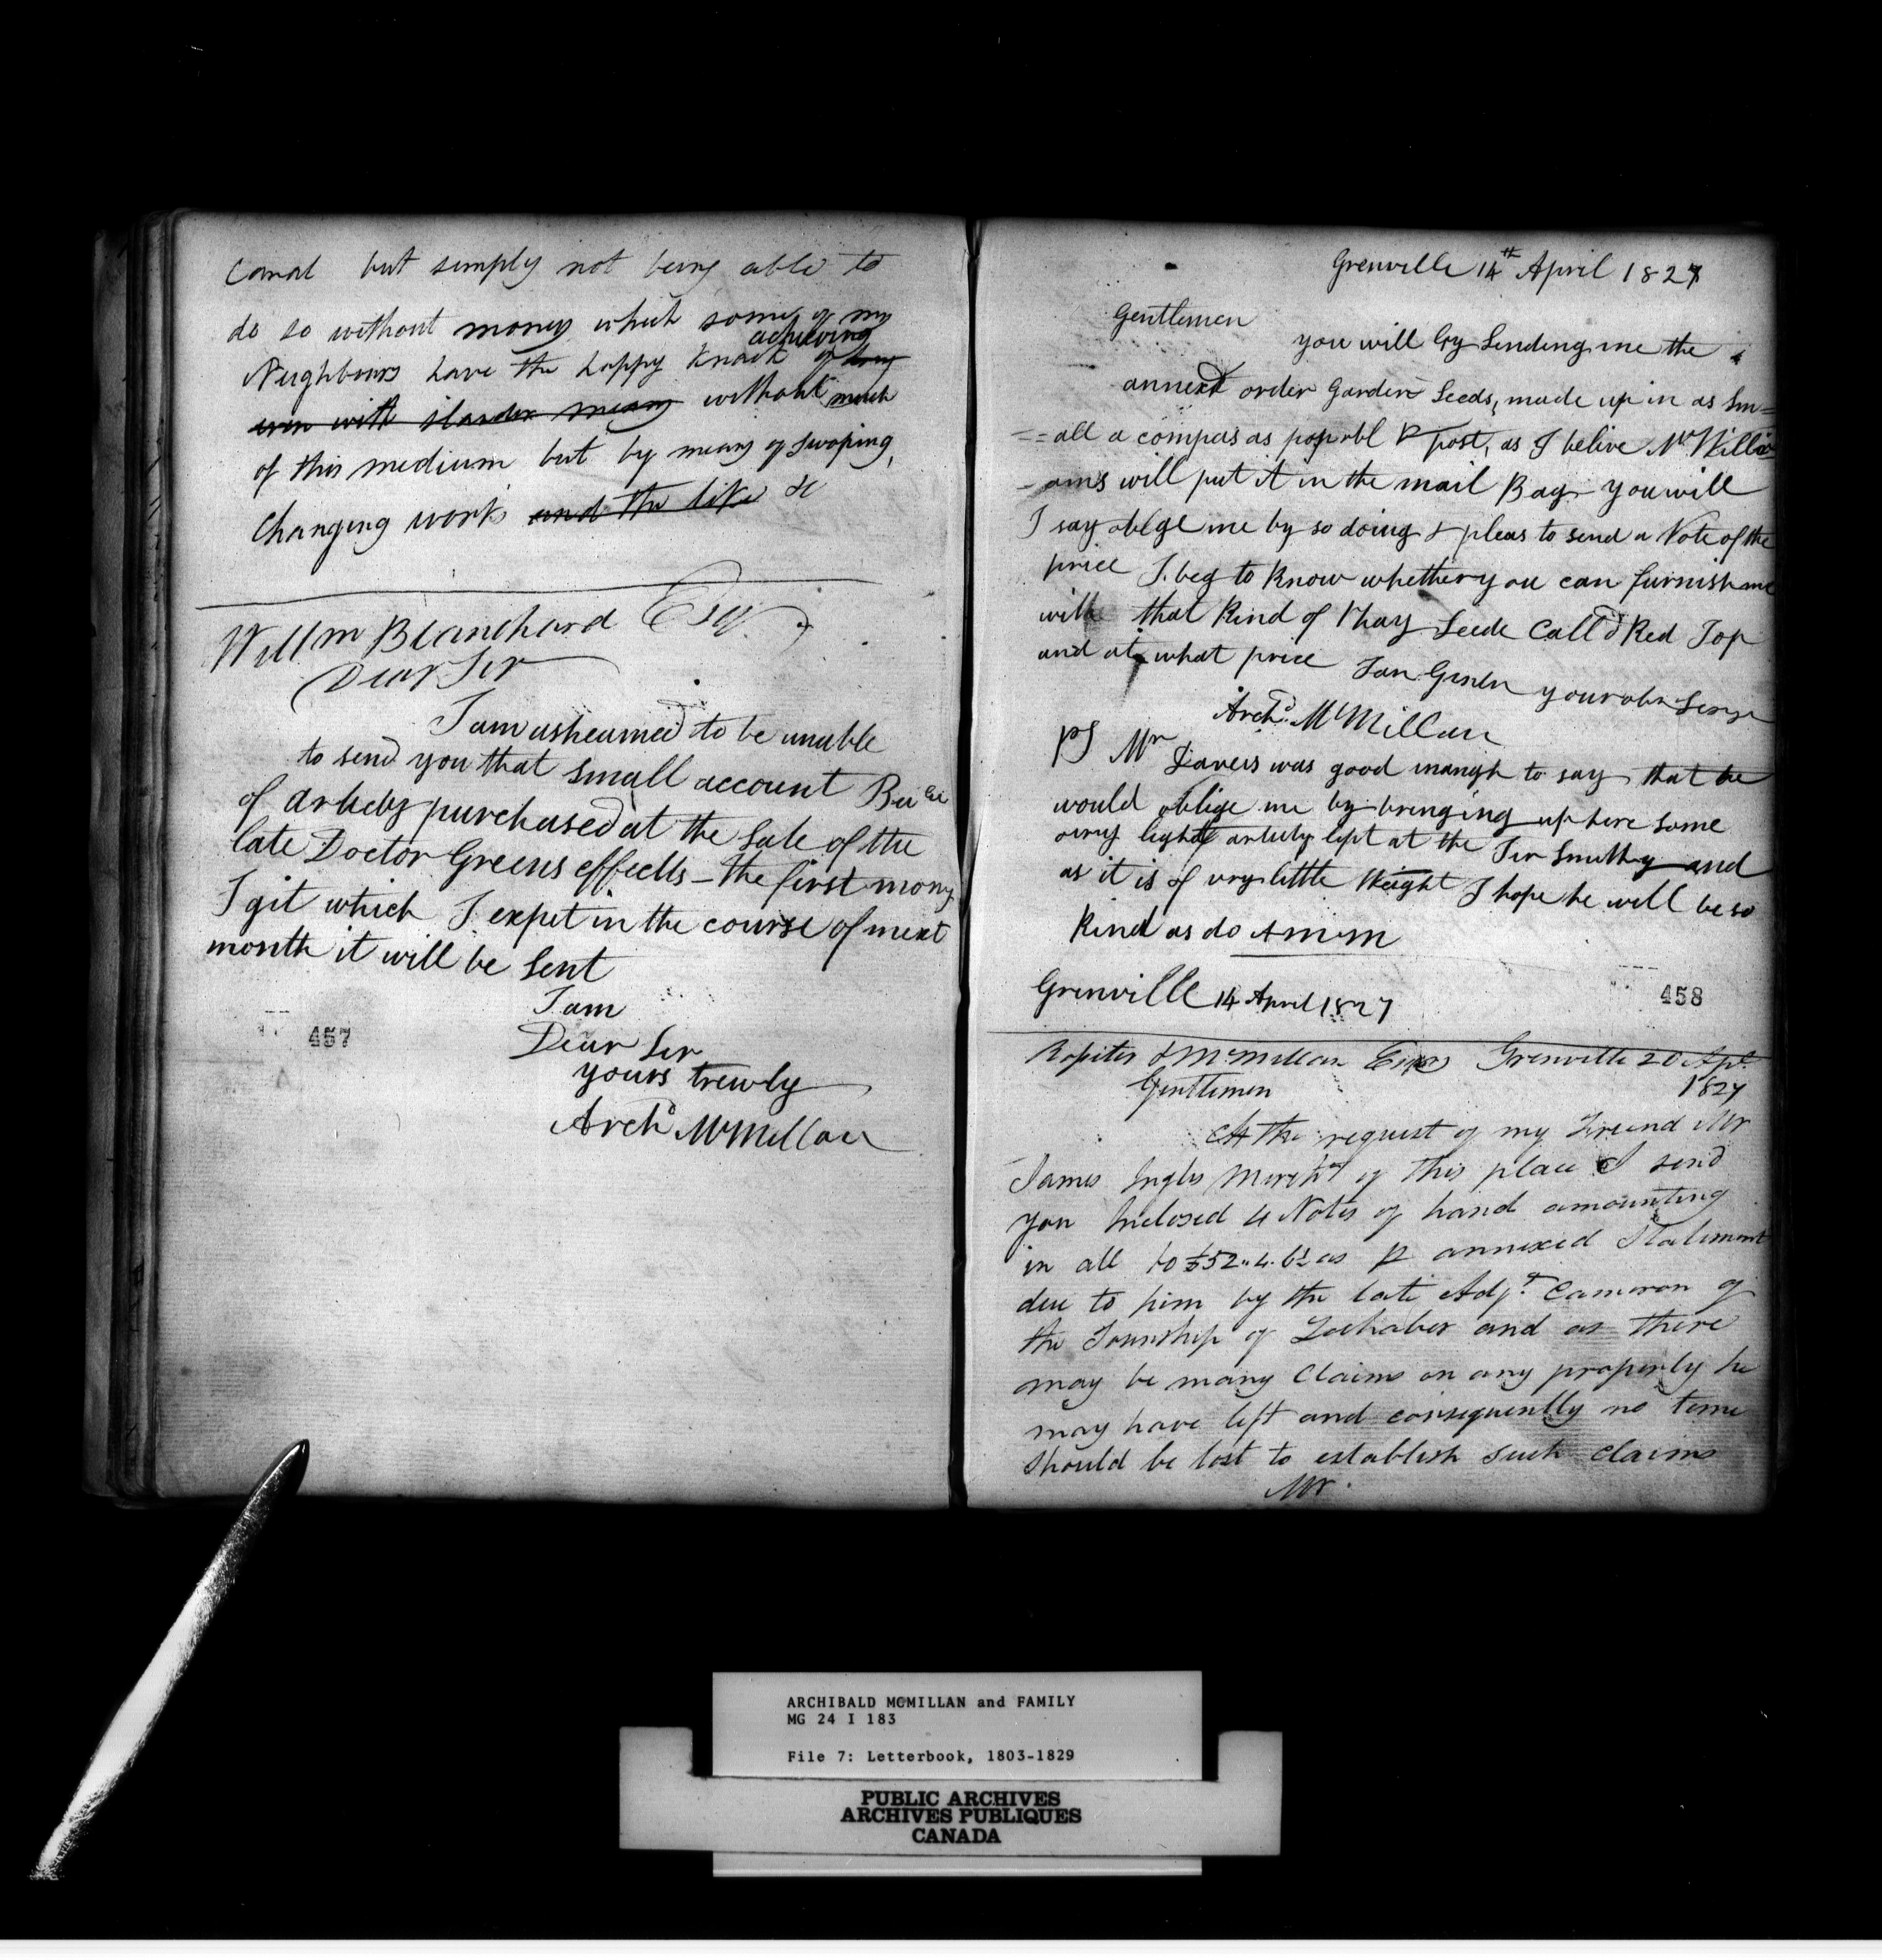 Canal but simply not being able to
do so without money which some of my
achieving
Neighbours have the happy knack of doing
even with slander means without much
of this medium but by means of swoping,
Changing work and the like &c
Willm Blanchard Esqr
Dear Sir
I am asheamed to be unable
to send you that small account
of articly purchased at the Sale of the
late Doctor Greens effects - the first mony
I git which I expet in the course of next
month it will be Sent
I am
Dear Sir
yours trewly
Archd McMillan
457
Grenville 14th April 1827
Gentlemen
you will by Sending me the
annext order Garden Seeds, made up in as Sm=
=all a compas as possibl P post, as I belive Mr Willi
-ams will put it in the mail Bag - you will
I say oblge me by so doing & pleas to send a Note of the
price I beg to know whether you can furnish me
with that kind of hay Seede Calld Red Top
and at what price I am Genln your obn Serv
Archd McMillan
PS Mr Davies was good inangh to say that he
would oblige me by bringing up here some
very light articly left at the Tin Smithy and
as it is of very little Weight I hope he will be so
kind as do A McM
Grenville 14 April 1827
458
Ropiter & McMillan Esqrs Grenville 20 Apl.
1827
Gentlemen
At the request of my Friend Mr
James Ingles Mercht of this place I send
you Inclosed 4 Notes of hand amounting
in all to £52.4.6d as P annexed Statement
due to him by the late Adjt. Cameron of
the Township of Lochaber and as there
may be many Claims on any property he
may have left and consequently no time
should be lost to establish such claims
Mr.
ARCHIBALD MCMILLAN and FAMILY
MG 24 I 183
File 7: Letterbook, 1803-1829
PUBLIC ARCHIVES
ARCHIVES PUBLIQUES
CANADA